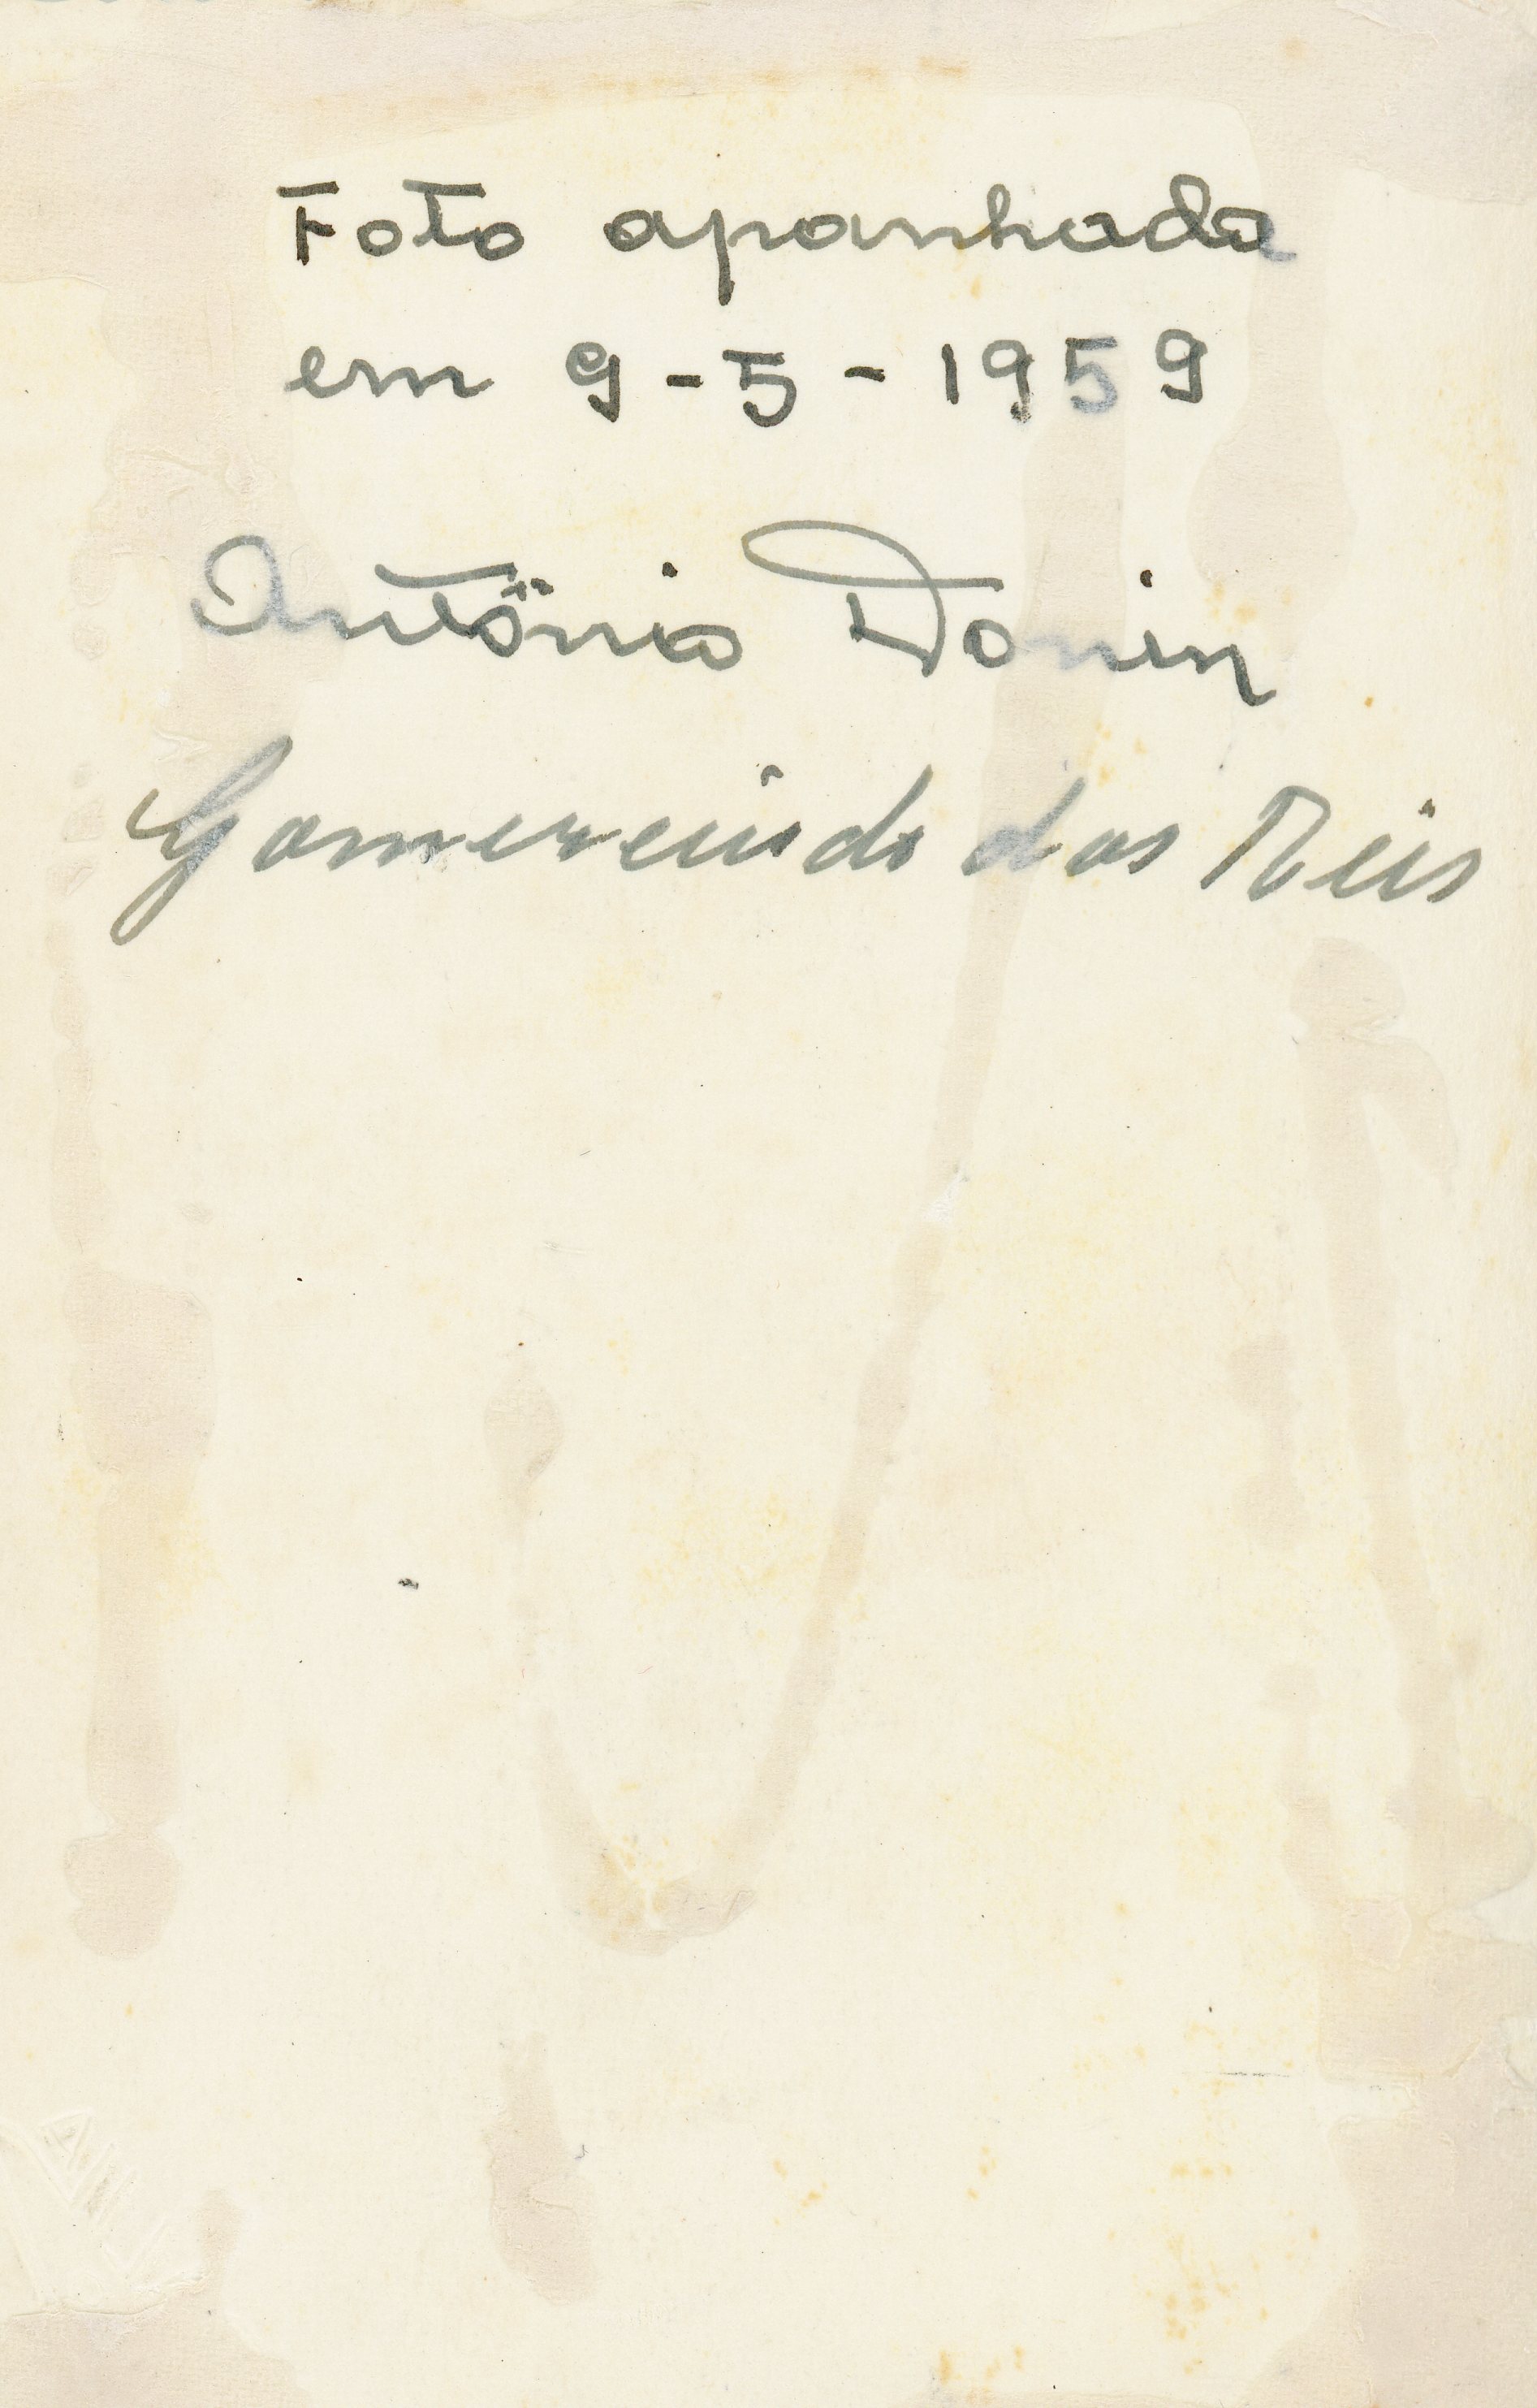 Foto apanhada
em 9-5-1959
Antônio Donin
Gomercindo dos Reis